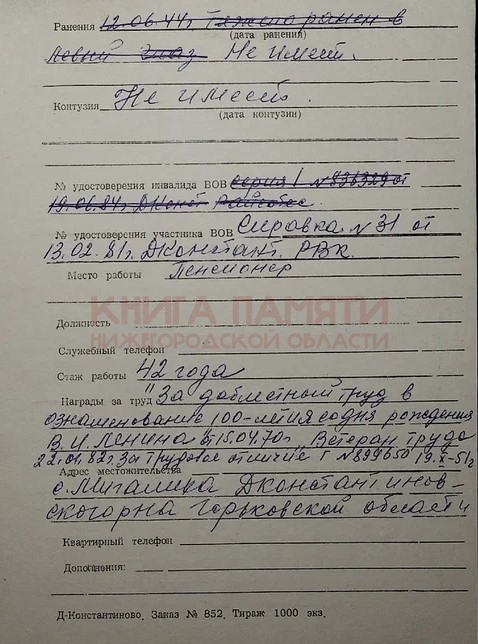 Ранения 12.06.44г Тяжело ранен в
(дата ранения)
левый глаз Не имеет.
Контузия Не имеет.
(дата контузии)
№ удостоверения инвалида ВОВ серия I №836329 от
19.06.84г. Дконст Райсобес
№ удостоверения участника ВОВ Справка №31 от
13.02.81г. Дконстант. РВК.
Место работы Пенсионер
КНИГА ПАМЯТИ
НИЖЕГОРОДСКОЙ ОБЛАСТИ
Должность
Служебный телефон
Стаж работы 42 года
Награды за труд "За доблестный труд в
ознаменование 100-летия со дня рождения
В.И. Ленина 15.04.70г, Ветеран труда
22.01.82г. За трудовое отличие г №899650 19.X-51г
Адрес местожительства
с. Мигалиха Дконстантинов-
ского р-на Горьковской области
Квартирный телефон
Дополнения:
Д-Константиново. Заказ № 852. Тираж 1000 экз.